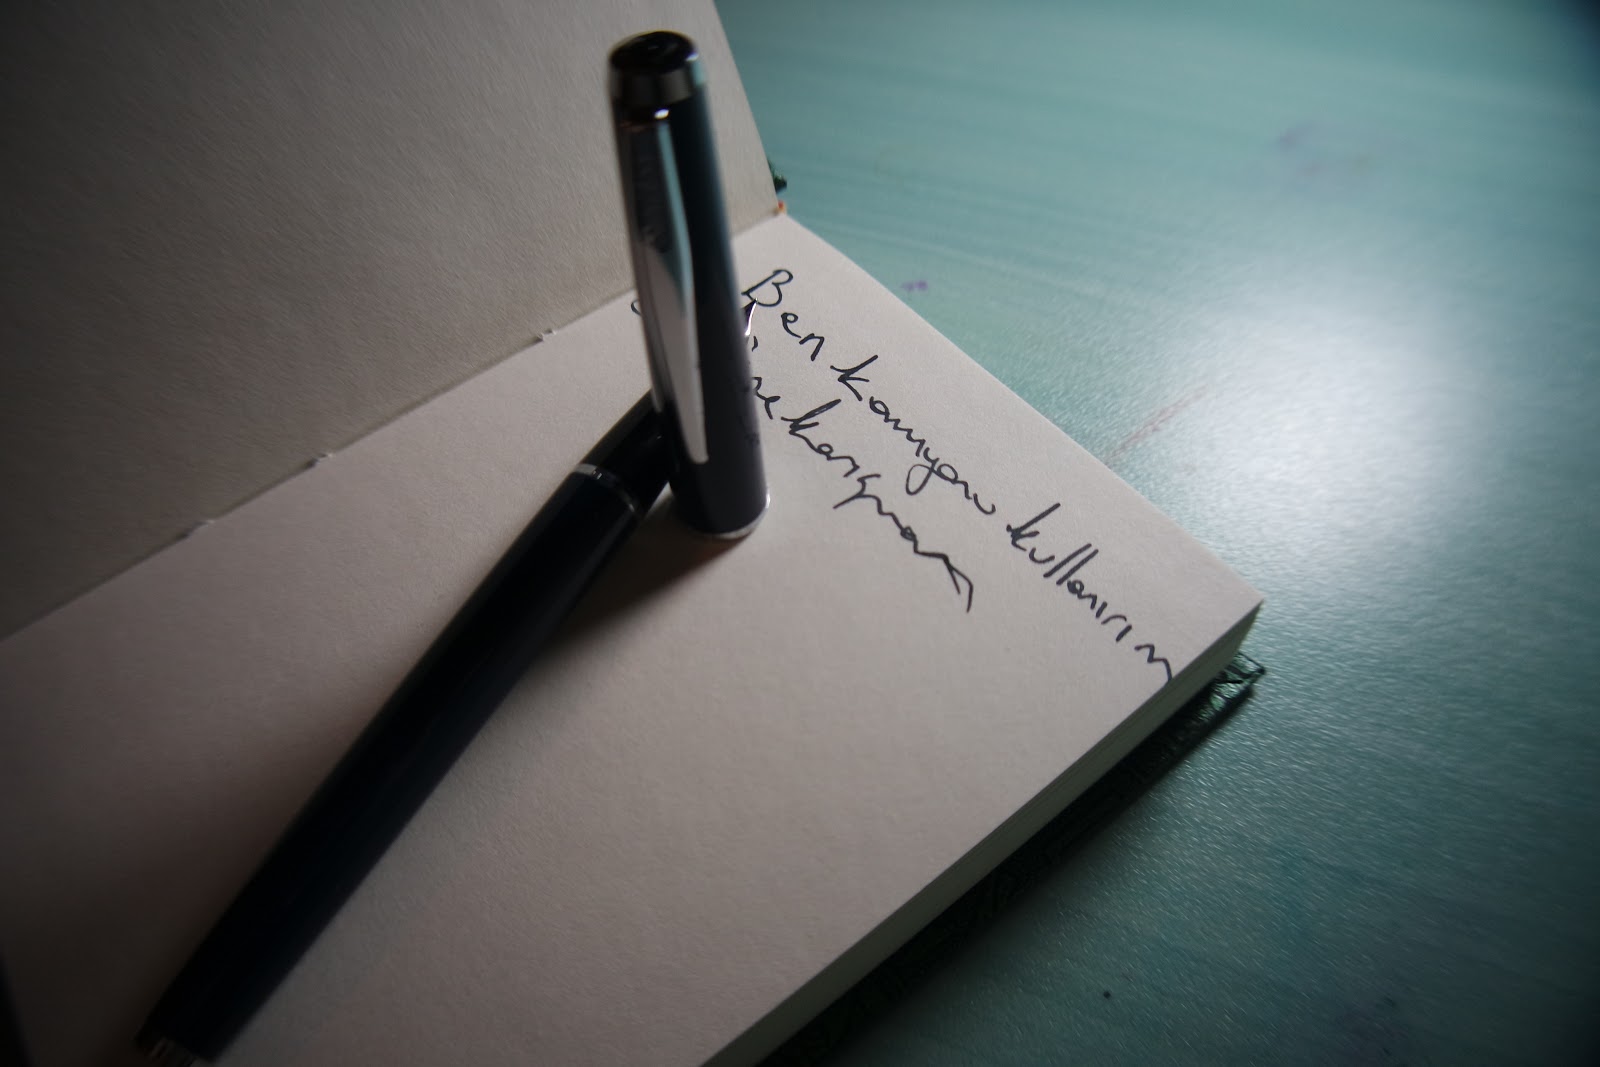 Ben kamyonu kullanırım
karışmam